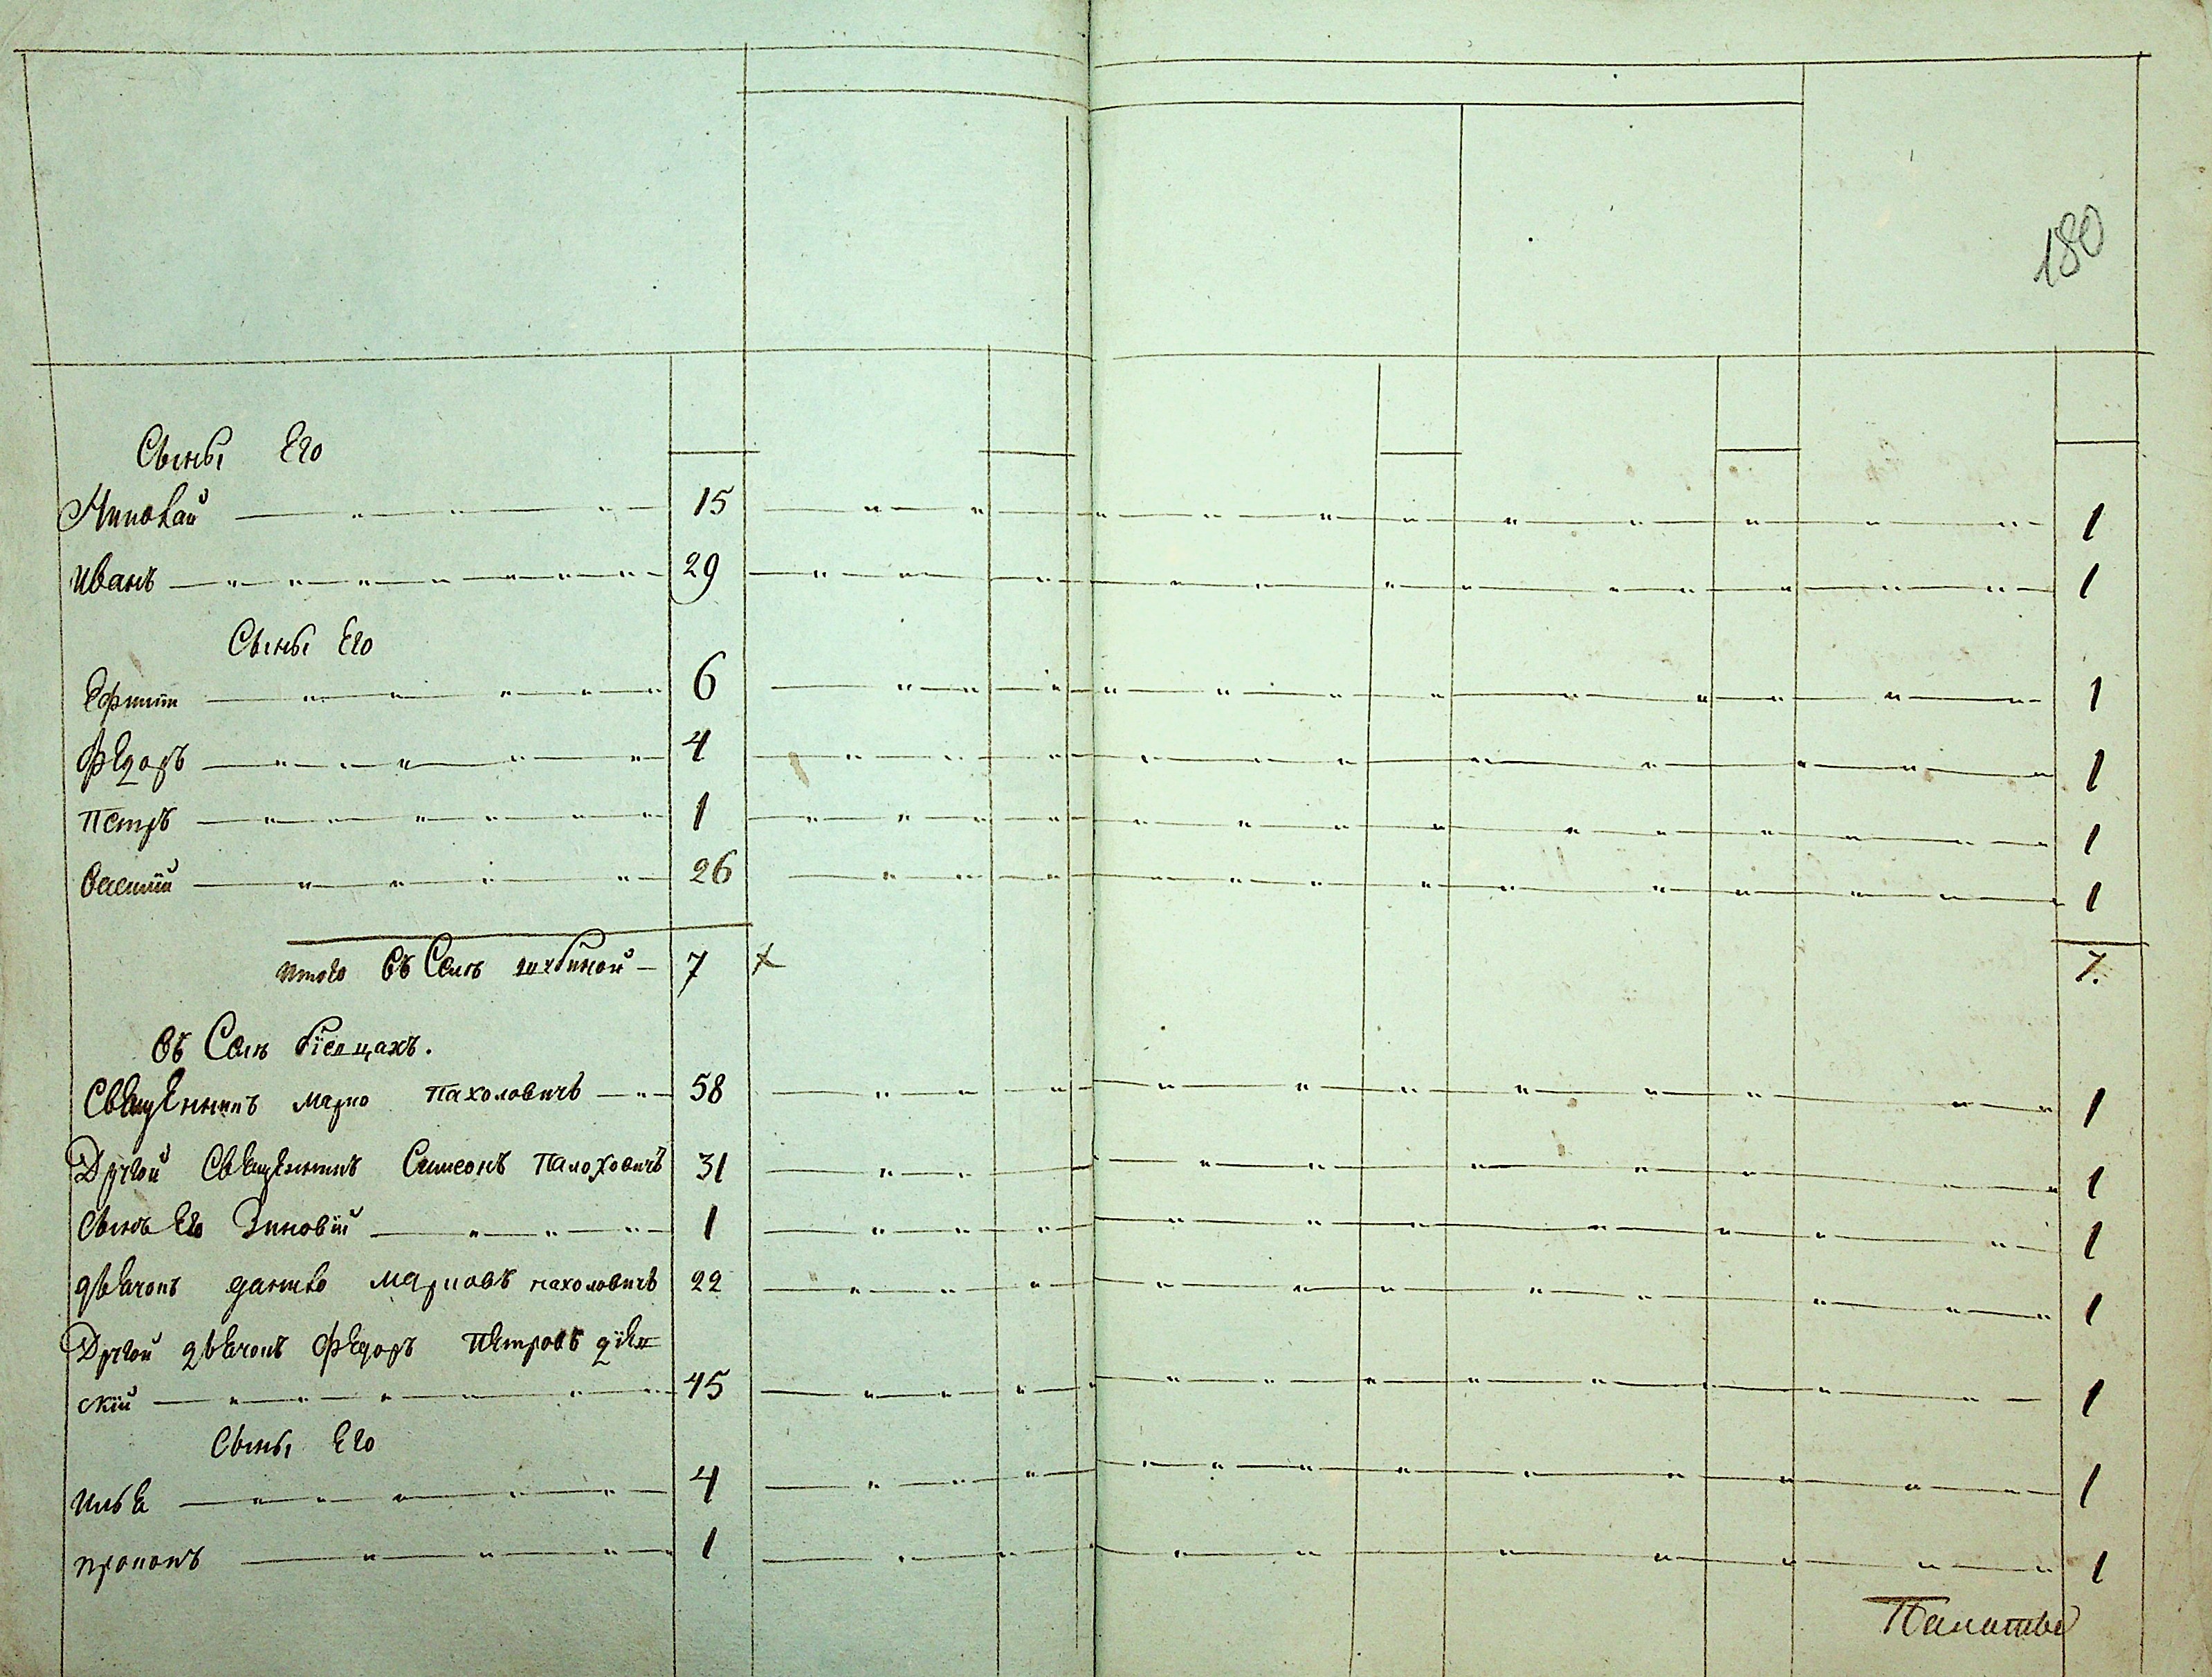 180
Сыны Его
Николай 15 1
Иванъ 29 1
Сыны Его
Ефимий 6 1
Федоръ 4 1
Петръ 1 1
Василий 26 1
итого въ Селѣ 7 7.
въ Селѣ
Священникъ Марко Пахоловичъ 58 1
Другой Священникъ Симеонъ Пахоловичъ 31 1
Сынъ Его Зиновїй 1 1
дьячокъ данило Марковъ пахоловичъ 22 1
Другой дьячокъ Федоръ Петровъ
скїй 45 1
Сыны Его
илья 4 1
прокопъ 1 1
Палаты